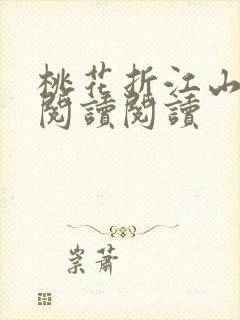 桃花折江山
閱讀閱讀
崇蕭